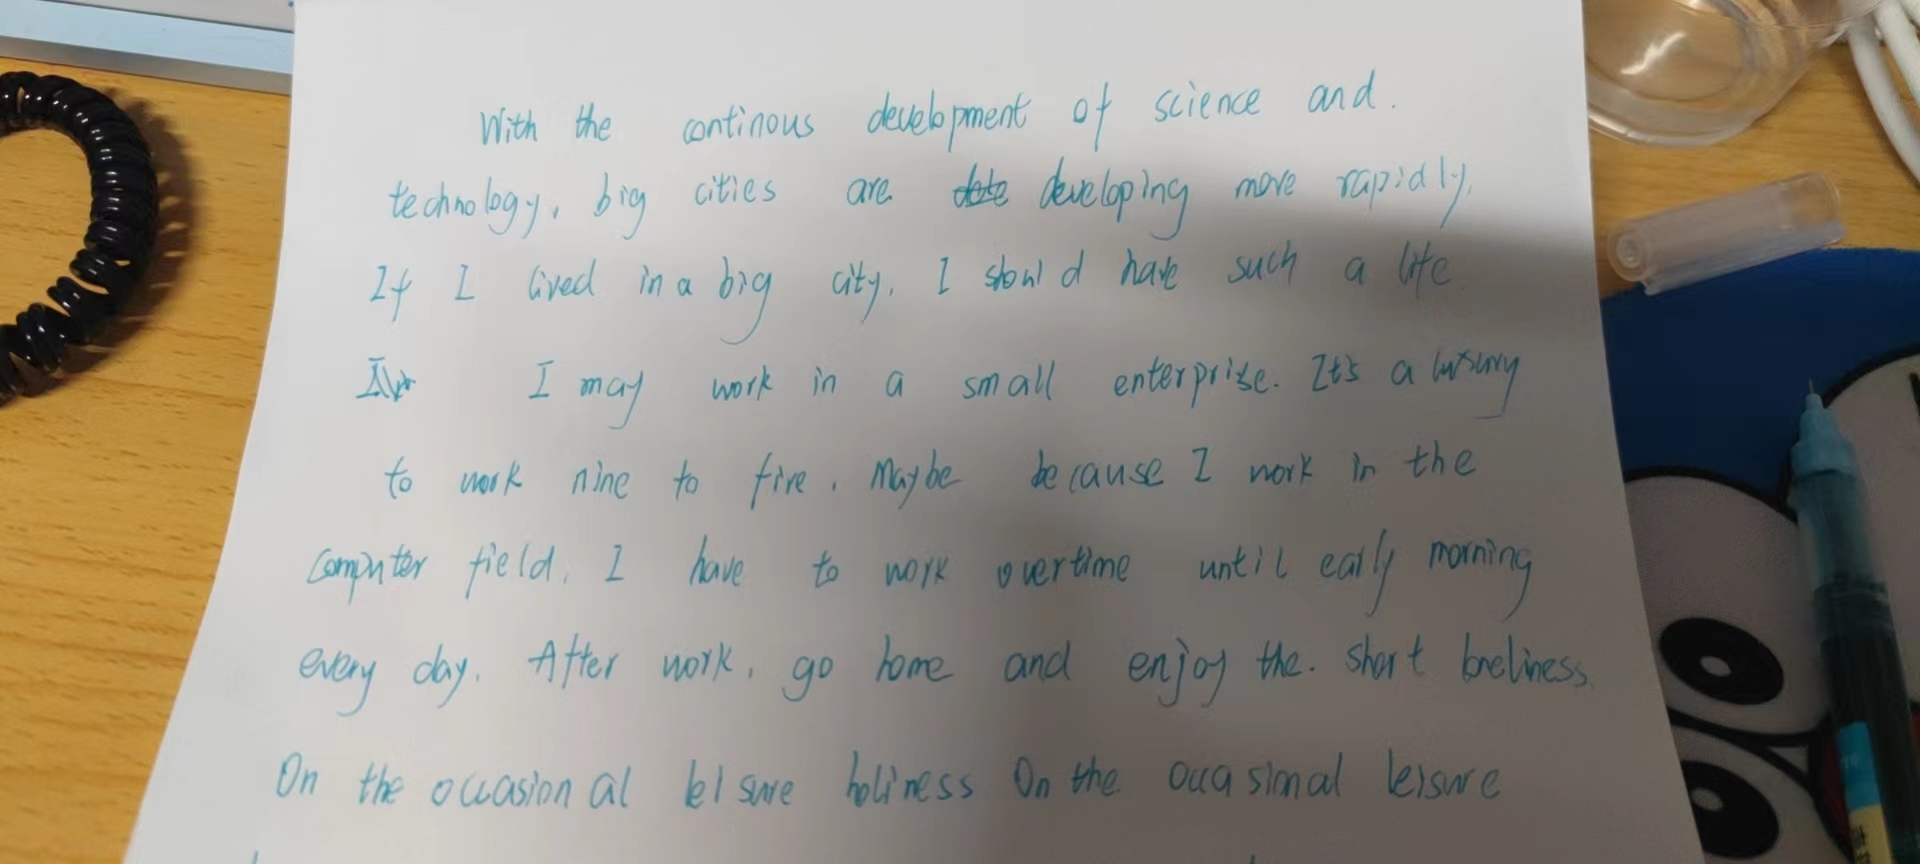 With the continous development of science and.
technology, big cities are developing more rapidly.
If I lived in a big city, I should have such a life
I may work in a small enterprise. It's a luxury
to work nine to five. Maybe because I work in the
computer field, I have to work overtime until early morning
every day. After work, go home and enjoy the. short loneliness.
On the occasional leisure holiness On the occasional leisure